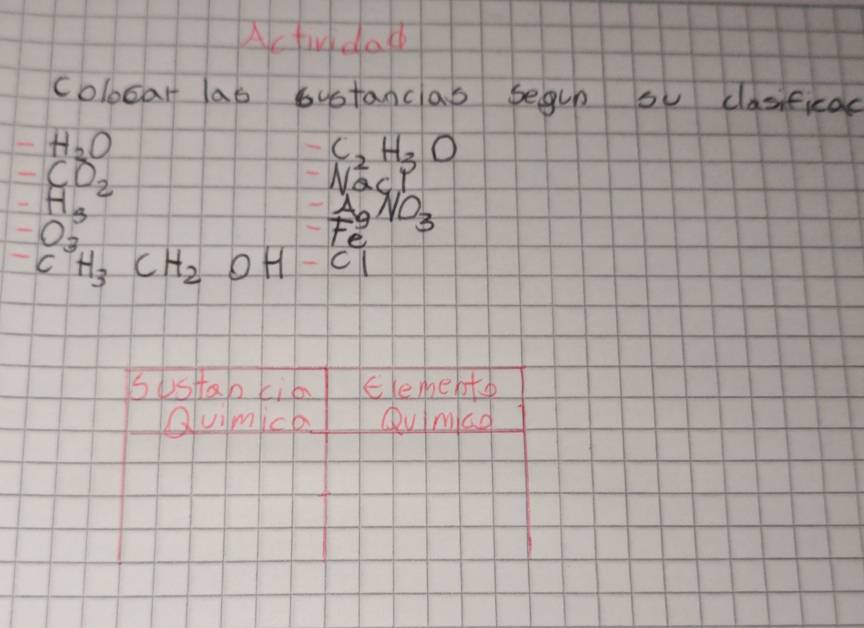 Actividad
Colocar las sustancias segun su clasificac
- H₂O
- CO₂
- H₃
- O₃
- CH₃ CH₂ OH
- C₂H₃O
- NaCl
- AgNO₃
- Fe
- Cl
Sustancia Elemento
Quimica Quimico